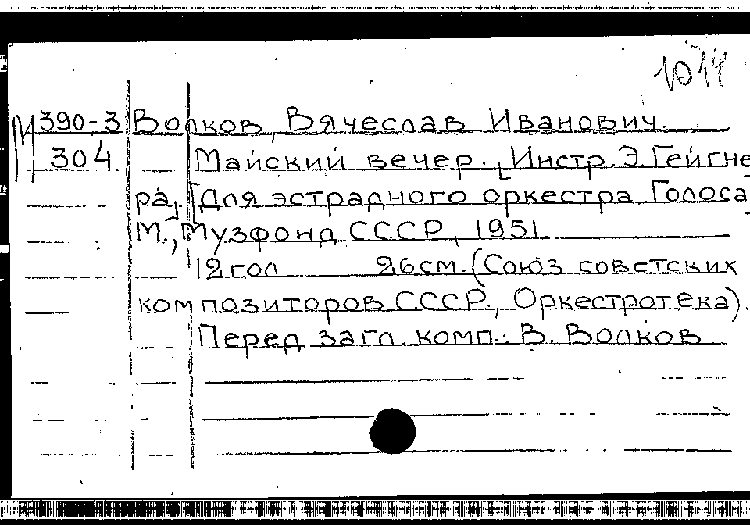 1044
М 390-3 Волков, Вячеслав Иванович.
304 Майский вечер. [Инстр. Э. Гейгне
ра]. [Для эстрадного оркестра. Голоса]
М., Музфонд СССР, 1951.
12 гол 26 см. (Союз советских
композиторов СССР., Оркестротека).
Перед загл. комп.: В. Волков